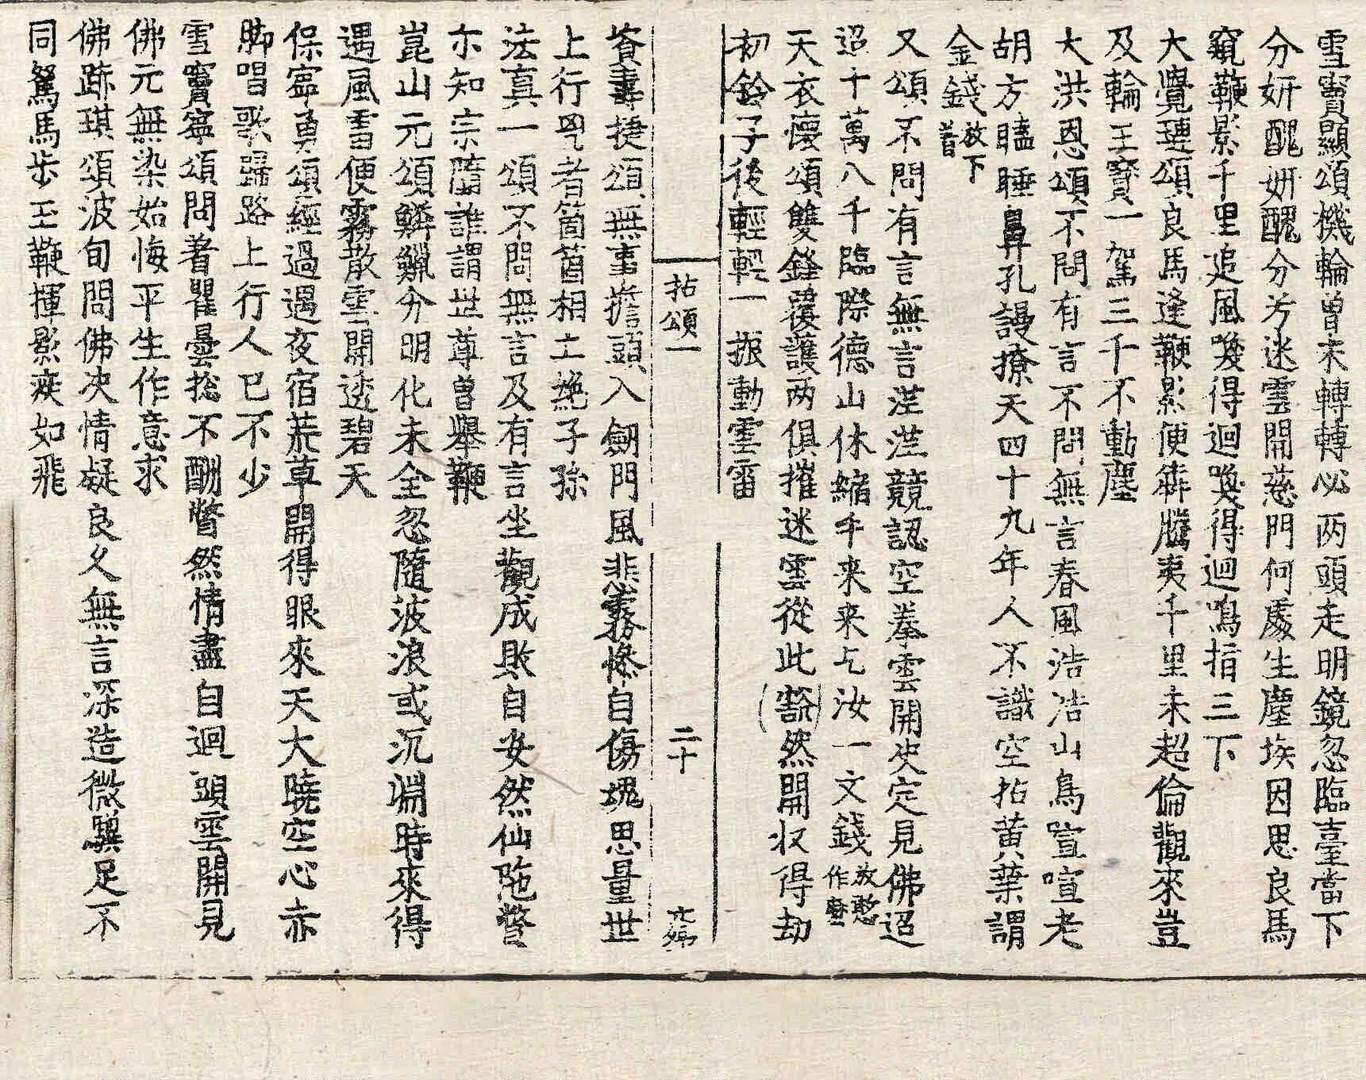 雪竇顯頌機輪曾未轉轉必兩頭走明鏡忽臨臺當下
分妍醜妍醜分兮迷雲開慈門何處生塵埃因思良馬
窺鞭影千里追風喚得迴喚得迴鳴指三下
大覺璉頌良馬逢鞭影便犇騰夷千里未超倫觀來豈
及輪王寶一駕三千不動塵
大洪恩頌不問有言不問無言春風浩浩山鳥喧喧老
胡方瞌睡鼻孔謾撩天四十九年人不識空拈黄葉謂
金錢放下著
又頌不問有言無言涅涅競認空拳雲開史定見佛迢
迢千萬八千臨際德山休縮手来来乞汝一文錢放憨作麽
天衣懷頌雙鋒護護两俱摧迷雲從此(豁)然開収得劫
初鈴子後輕輕一振動雲雷
拈頌一
二十
資壽捷頌無事擔頭入劒門風非霧慘自傷塊思量世
上行皃者箇箇相上絶子孫
法真一頌不問無言及有言坐觀成敗自安然仙陁瞥
尓知宗隨誰謂世尊曾舉鞭
崑山元頌鱗鱺分明化未全忽隨波浪或沉淵時來得
遇風雪便霧散雲開透碧天
保寧勇頌經過遇夜宿荒草開得眼來天大曉空心赤
脚唱歌歸路上行人已不少
雪竇寧頌問着瞿曇捴不酬瞥然情盡自迴頭雲開見
佛元無染始悔平生作意求
佛跡琪頌波旬問佛决情凝良乆無言深造微驥足不
同駑馬步玉鞭揮影疾如飛